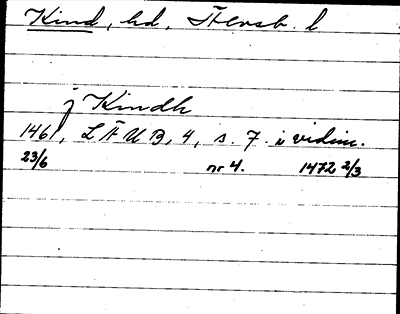 Kind, hd, Älvsb. l
j Kindh
1461, LÄUB, 4, s. 7. i vidim.
23/6 nr 4. 1472 2/3